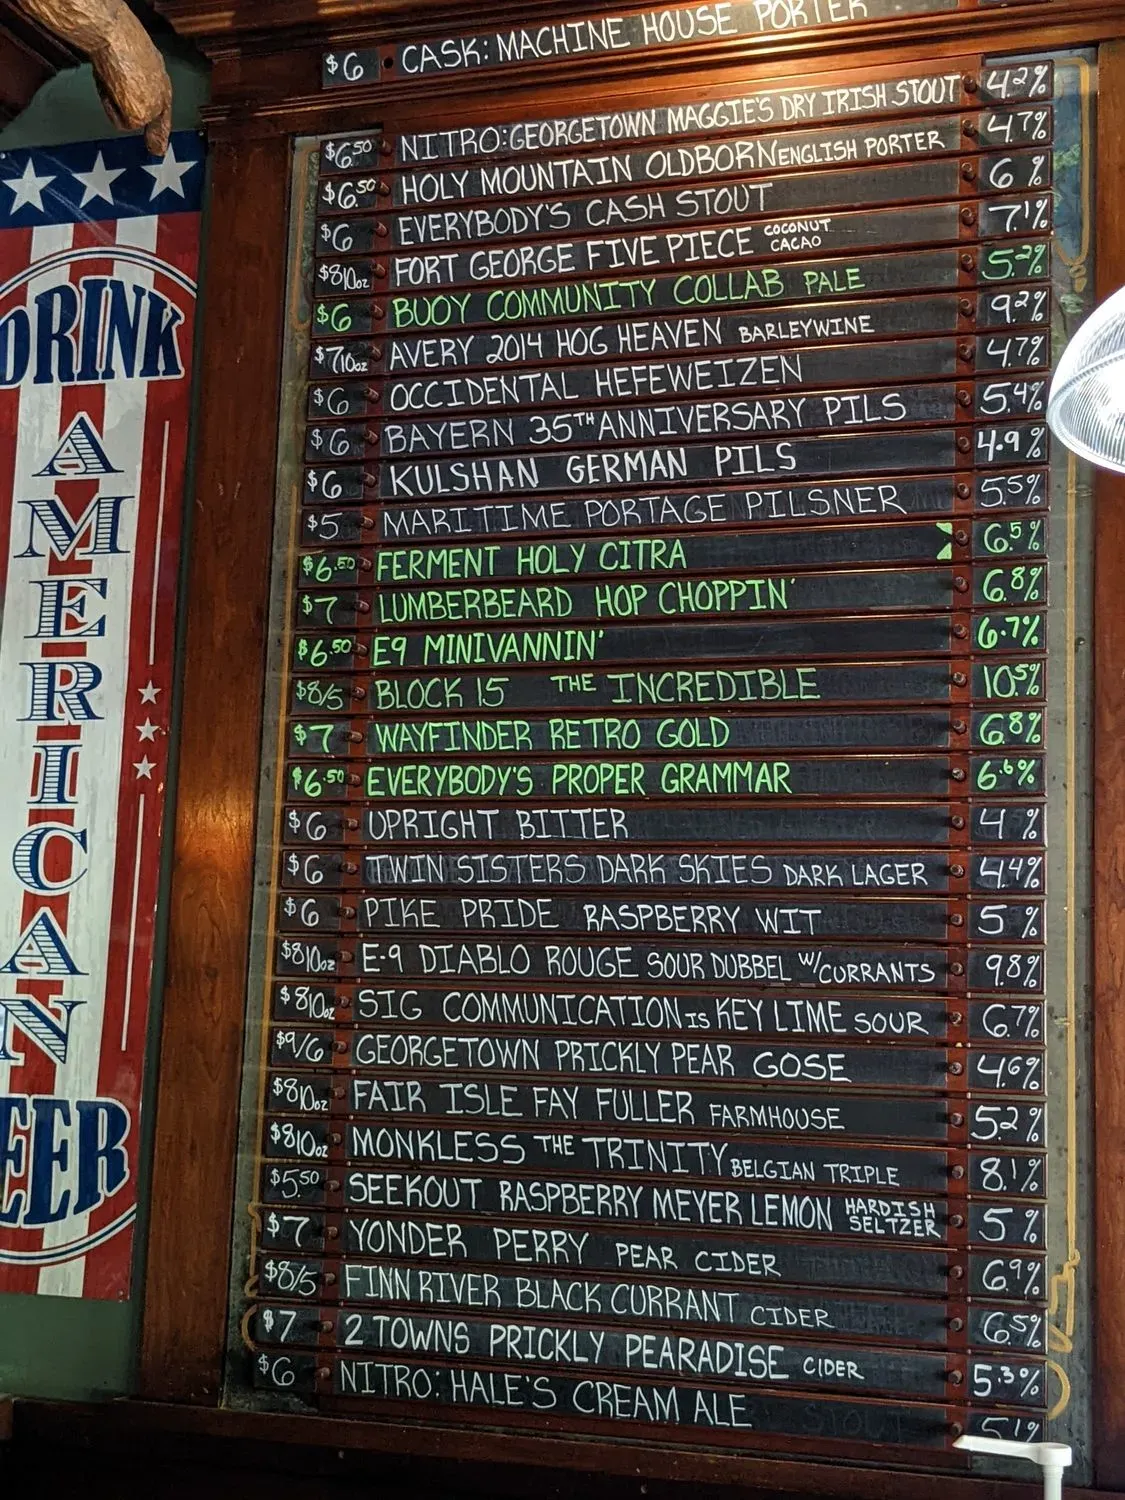 $6 CASK: MACHINE HOUSE PORTER
$6.50 NITRO: GEORGETOWN MAGGIE'S DRY IRISH STOUT 4.2%
$6.50 HOLY MOUNTAIN OLDBORN ENGLISH PORTER 4.7%
$6 EVERYBODY'S CASH STOUT 6%
$8 10oz FORT GEORGE FIVE PIECE COCONUT CACAO 7.1%
$6 BUOY COMMUNITY COLLAB PALE 5.2%
$7 10oz AVERY 2014 HOG HEAVEN BARLEYWINE 9.2%
$6 OCCIDENTAL HEFEWEIZEN 4.7%
$6 BAYERN 35TH ANNIVERSARY PILS 5.4%
$6 KULSHAN GERMAN PILS 4.9%
$5 MARITIME PORTAGE PILSNER 5.5%
$6.50 FERMENT HOLY CITRA 6.5%
$7 LUMBERBEARD HOP CHOPPIN' 6.8%
$6.50 E9 MINIVANNIN' 6.7%
$8/5 BLOCK 15 THE INCREDIBLE 10.5%
$7 WAYFINDER RETRO GOLD 6.8%
$6.50 EVERYBODY'S PROPER GRAMMAR 6.6%
$6 UPRIGHT BITTER 4%
$6 TWIN SISTERS DARK SKIES DARK LAGER 4.4%
$6 PIKE PRIDE RASPBERRY WIT 5%
$8 10oz E-9 DIABLO ROUGE SOUR DUBBEL W/CURRANTS 9.8%
$8 10oz SIG COMMUNICATION IS KEY LIME SOUR 6.7%
$9/6 GEORGETOWN PRICKLY PEAR GOSE 4.6%
$8 10oz FAIR ISLE FAY FULLER FARMHOUSE 5.2%
$8 10oz MONKLESS THE TRINITY BELGIAN TRIPLE 8.1%
$5.50 SEEKOUT RASPBERRY MEYER LEMON HARDISH SELTZER 5%
$7 YONDER PERRY PEAR CIDER 6.9%
$8/5 FINN RIVER BLACK CURRANT CIDER 6.5%
$7 2 TOWNS PRICKLY PEARADISE CIDER 5.3%
$6 NITRO: HALE'S CREAM ALE 5.1%
DRINK
AMERICAN
BEER